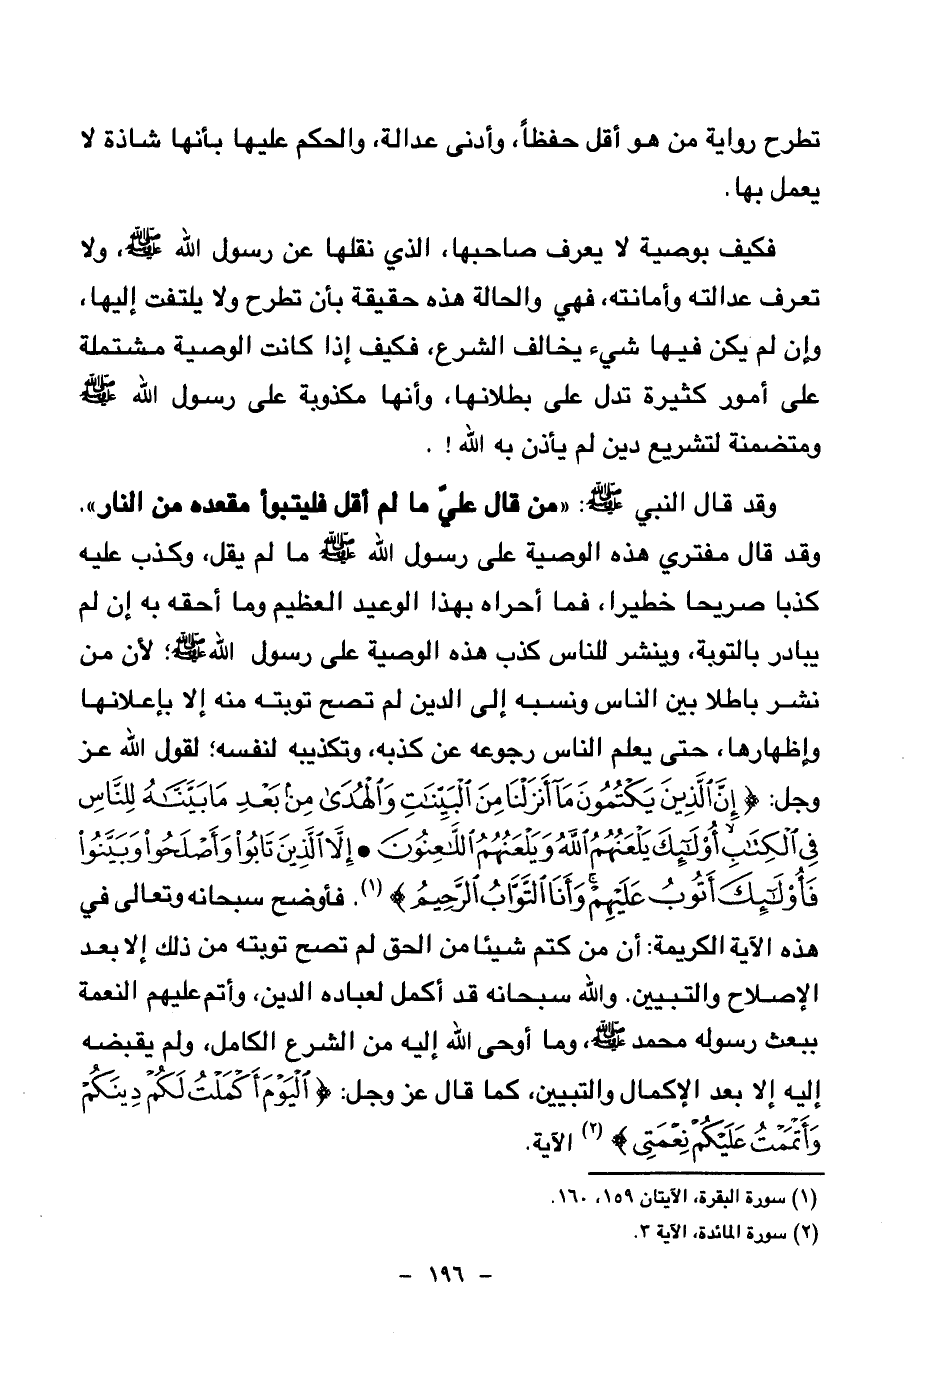 تطرح رواية من هو أقل حفظاً، وأدنى عدالة، والحكم عليها بأنها شاذة لا
يعمل بها.
فكيف بوصية لا يعرف صاحبها، الذي نقلها عن رسول الله ﷺ، ولا
تعرف عدالته وأمانته، فهي والحالة هذه حقيقة بأن تطرح ولا يلتفت إليها،
وإن لم يكن فيها شيء يخالف الشرع، فكيف إذا كانت الوصية مشتملة
على أمور كثيرة تدل على بطلانها، وأنها مكذوبة على رسول الله ﷺ
ومتضمنة لتشريع دين لم يأذن به الله! .
وقد قال النبي ﷺ: «من قال عليّ ما لم أقل فليتبوأ مقعده من النار».
وقد قال مفتري هذه الوصية على رسول الله ﷺ ما لم يقل، وكذب عليه
كذبا صريحا خطيرا، فما أحراه بهذا الوعيد العظيم وما أحقه به إن لم
يبادر بالتوبة، وينشر للناس كذب هذه الوصية على رسول الله ﷺ؛ لأن من
نشر باطلا بين الناس ونسبه إلى الدين لم تصح توبته منه إلا بإعلانها
وإظهارها، حتى يعلم الناس رجوعه عن كذبه، وتكذيبه لنفسه؛ لقول الله عز
وجل: ﴿ إِنَّ ٱلَّذِينَ يَكْتُمُونَ مَآ أَنزَلْنَا مِنَ ٱلْبَيِّنَٰتِ وَٱلْهُدَىٰ مِنۢ بَعْدِ مَا بَيَّنَّٰهُ لِلنَّاسِ
فِى ٱلْكِتَٰبِ ۙ أُو۟لَٰٓئِكَ يَلْعَنُهُمُ ٱللَّهُ وَيَلْعَنُهُمُ ٱللَّٰعِنُونَ • إِلَّا ٱلَّذِينَ تَابُوا۟ وَأَصْلَحُوا۟ وَبَيَّنُوا۟
فَأُو۟لَٰٓئِكَ أَتُوبُ عَلَيْهِمْ ۚ وَأَنَا ٱلتَّوَّابُ ٱلرَّحِيمُ ﴾ (١). فأوضح سبحانه وتعالى في
هذه الآية الكريمة: أن من كتم شيئا من الحق لم تصح توبته من ذلك إلا بعد
الإصلاح والتبيين. والله سبحانه قد أكمل لعباده الدين، وأتم عليهم النعمة
ببعث رسوله محمد ﷺ، وما أوحى الله إليه من الشرع الكامل، ولم يقبضه
إليه إلا بعد الإكمال والتبيين، كما قال عز وجل: ﴿ ٱلْيَوْمَ أَكْمَلْتُ لَكُمْ دِينَكُمْ
وَأَتْمَمْتُ عَلَيْكُمْ نِعْمَتِى ﴾ (٢) الآية.
(١) سورة البقرة، الآيتان ١٥٩، ١٦٠.
(٢) سورة المائدة، الآية ٣.
- ١٩٦ -